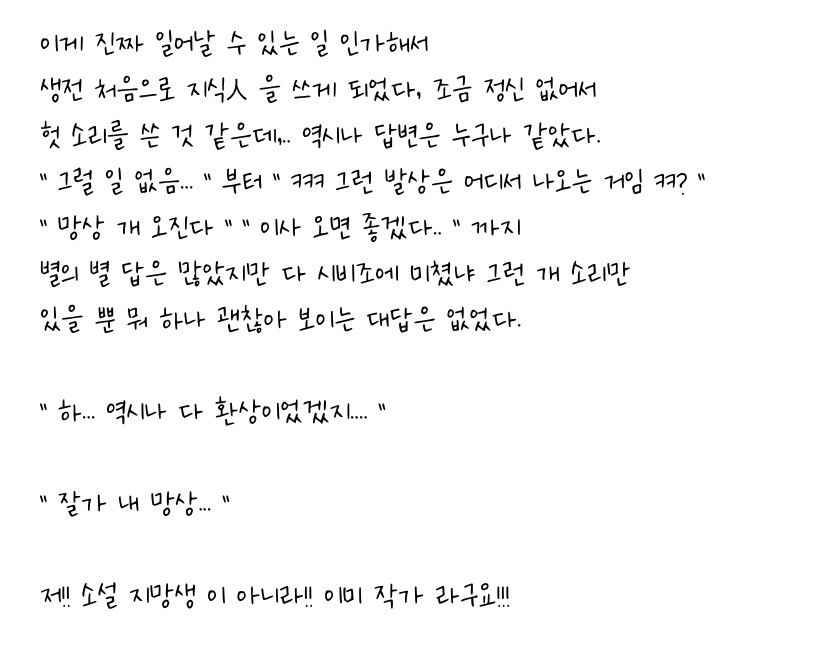 이게 진짜 일어날 수 있는 일 인가해서
생전 처음으로 지식人 을 쓰게 되었다, 조금 정신 없어서
헛 소리를 쓴 것 같은데,.. 역시나 답변은 누구나 같았다.
" 그럴 일 없음... " 부터 " ㅋㅋㅋ 그런 발상은 어디서 나오는 거임 ㅋㅋ? "
" 망상 개 오진다 " " 이사 오면 좋겠다.. " 까지
별의 별 답은 많았지만 다 시비조에 미쳤냐 그런 개 소리만
있을 뿐 뭐 하나 괜찮아 보이는 대답은 없었다.
" 하... 역시나 다 환상이었겠지.... "
" 잘가 내 망상... "
저!! 소설 지망생 이 아니라!! 이미 작가 라구요!!!